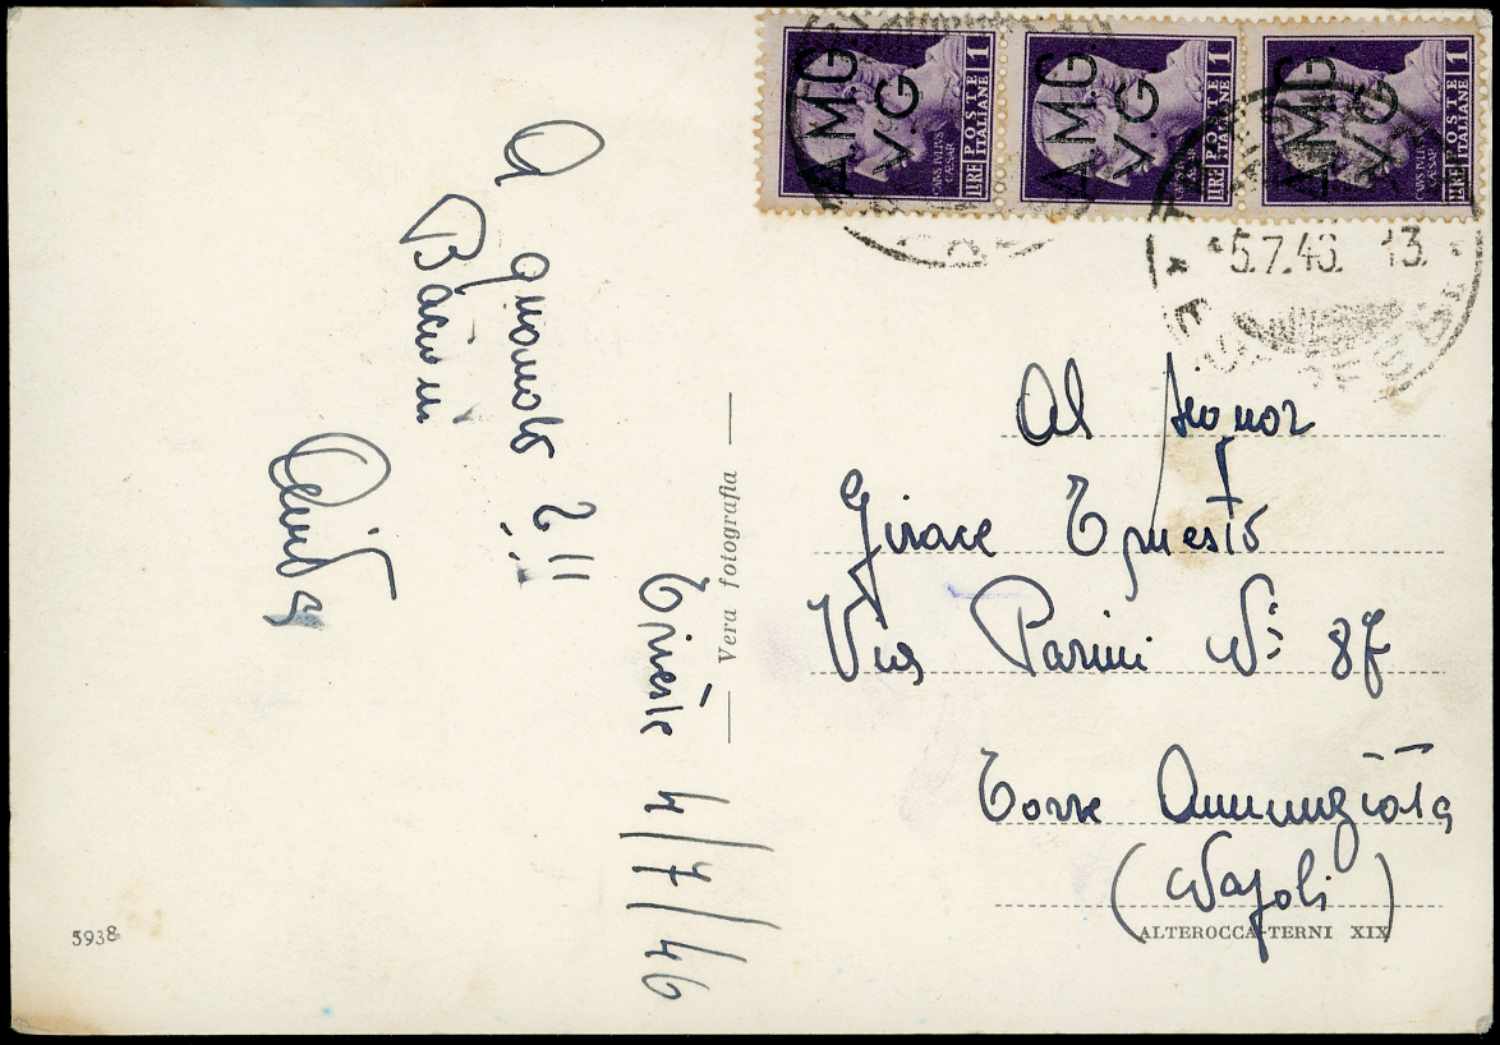 A.M.G.
V.G
LIRE POSTE ITALIANE 1
CAIVS IVLIVS
CAESAR
A.M.G.
V.G
LIRE POSTE ITALIANE 1
A.M.G.
V.G
LIRE POSTE ITALIANE 1
CAESAR
TRIESTE
5.7.46. 13.
A quando ?!!
Bacioni
Trieste 4/7/46
Vera fotografia
Al Signor
Girace Ernesto
Via Parini N: 87
Torre Annunziata
(Napoli)
5938
ALTEROCCA-TERNI XIX